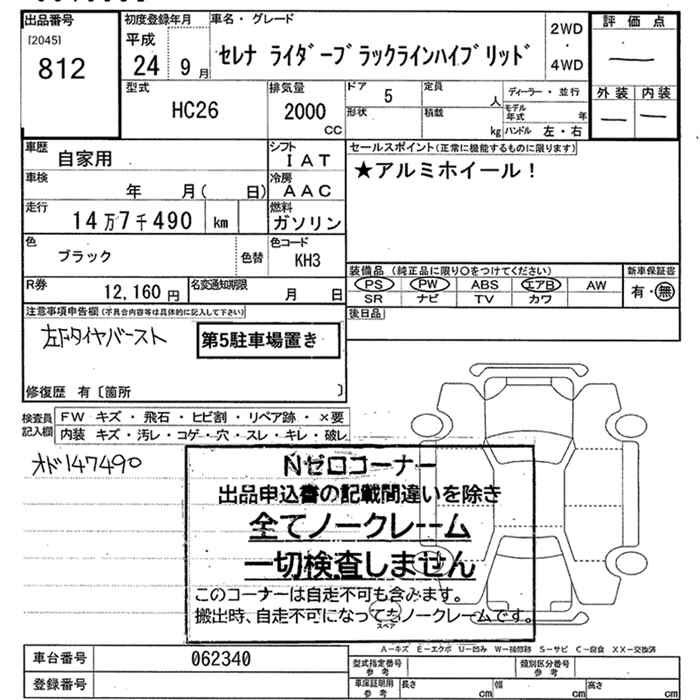 出品番号 初度登録年月 車名・グレード 評価点
[2045] 平成 2WD
812 24 9月 セレナ ライダーブラックラインハイブリッド ・ ―
4WD
型式 排気量 ドア 5 定員 人 ディーラー・並行 外装 内装
HC26 2000 CC 形状 積載 kg モデル年式 年 ― ―
ハンドル 左・右
車歴 自家用 シフト IAT セールスポイント(正常に機能するものに限ります)
車検 年 月( 日) 冷房 AAC ★アルミホイール！
走行 14万7千490 km 燃料 ガソリン
色 ブラック 色替 色コード KH3
装備品 (純正品に限り○をつけてください) 新車保証書
R券 12,160円 名変通知期限 月 日 PS PW ABS エアB AW 有・無
SR ナビ TV カワ
注意事項申告欄(不具合内容等は具体的に記入して下さい) 後日品
左下タイヤバースト 第5駐車場置き
修復歴 有〔箇所 〕
検査員記入欄 FW キズ・飛石・ヒビ割・リペア跡・×要
内装 キズ・汚レ・コゲ・穴・スレ・キレ・破レ
オド147490
Nゼロコーナー
出品申込書の記載間違いを除き
全てノークレーム
一切検査しません
このコーナーは自走不可も含みます。
搬出時、自走不可になってもノークレームです。
スペア
A－キズ E－エクボ U－凹み W－補修跡 S－サビ C－腐食 XX－交換済
車台番号 062340 型式指定番号 参考 類別区分番号 参考
登録番号 車庫証明用 参考 長さ cm 幅 cm 高さ cm